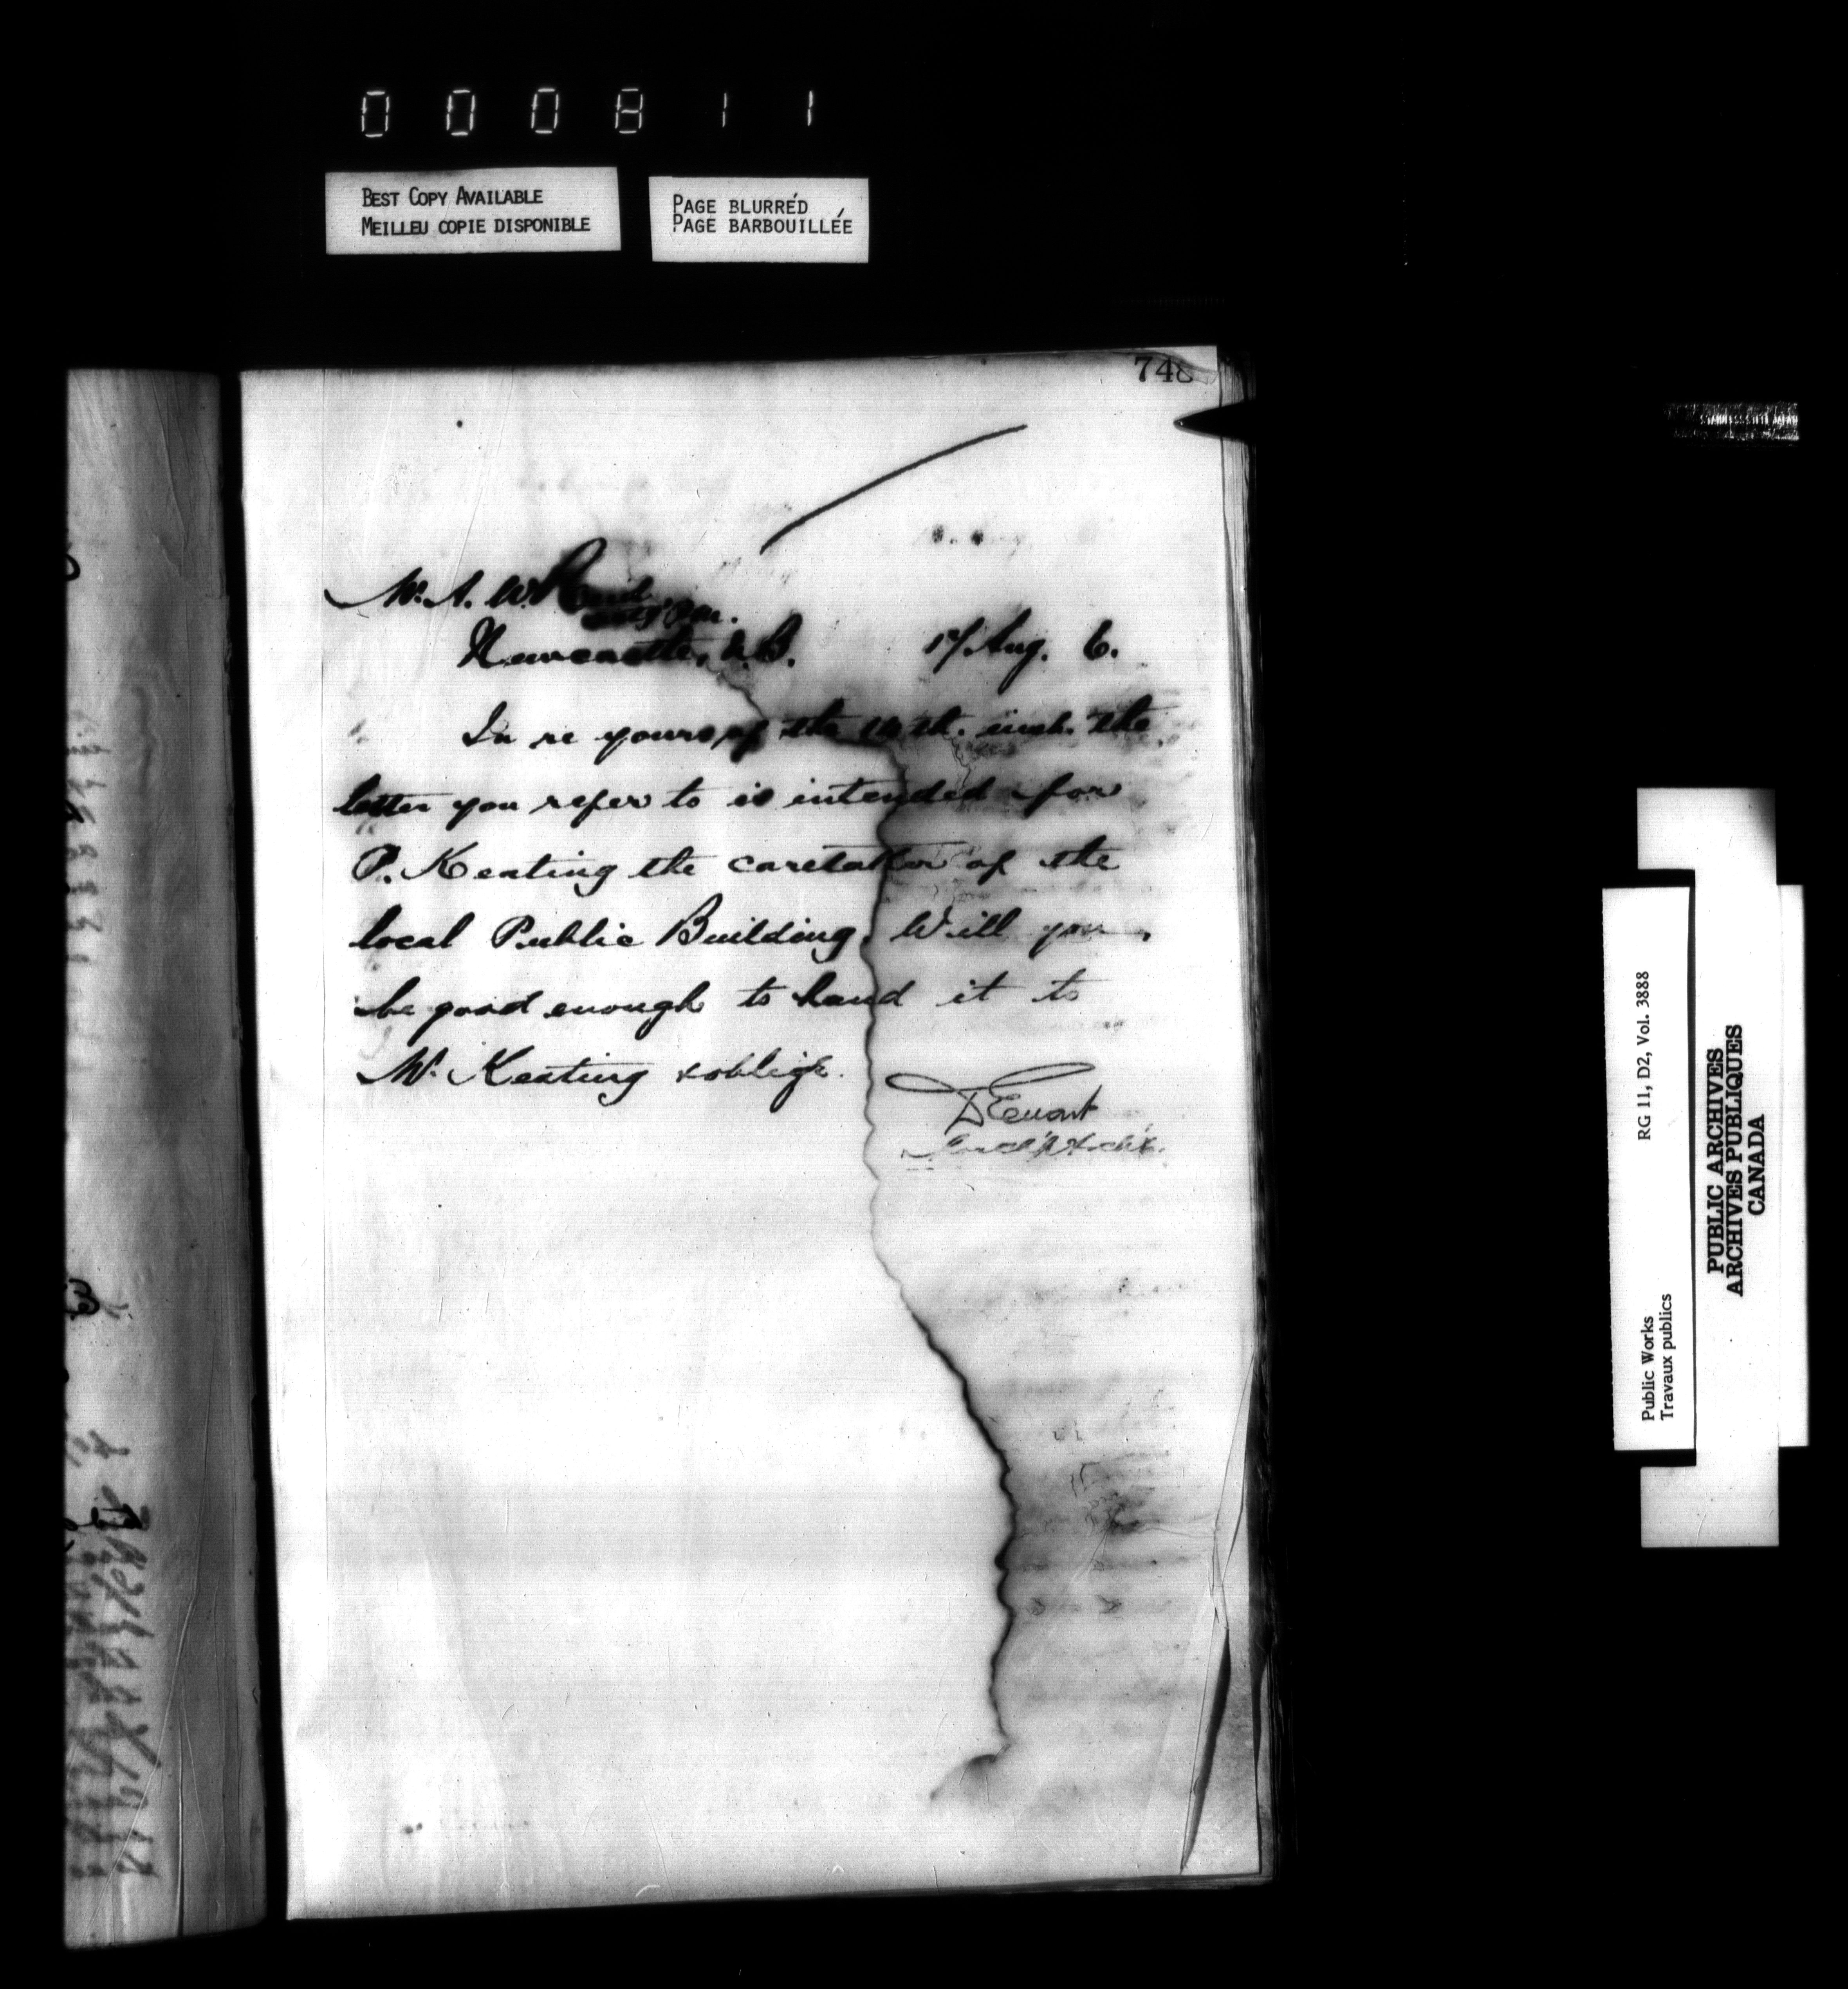 000811
BEST COPY AVAILABLE
MEILLEU COPIE DISPONIBLE
PAGE BLURRÉD
PAGE BARBOUILLÉE
748
Newcastle, N.B. 17 Aug. 6.
In re yours of the inst. the
letter you refer to is intended for
P. Keating the caretaker of the
local Public Building. Will you
be good enough to hand it to
Mr. Keating & oblige.
D Ewart
RG 11, D2, Vol. 3888
Public Works
Travaux publics
PUBLIC ARCHIVES
ARCHIVES PUBLIQUES
CANADA